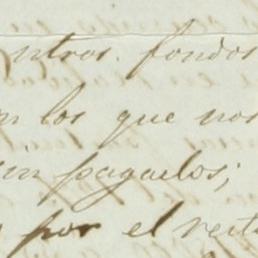 ntros. fondos
n los que nos
in pagarlos;
por el rest